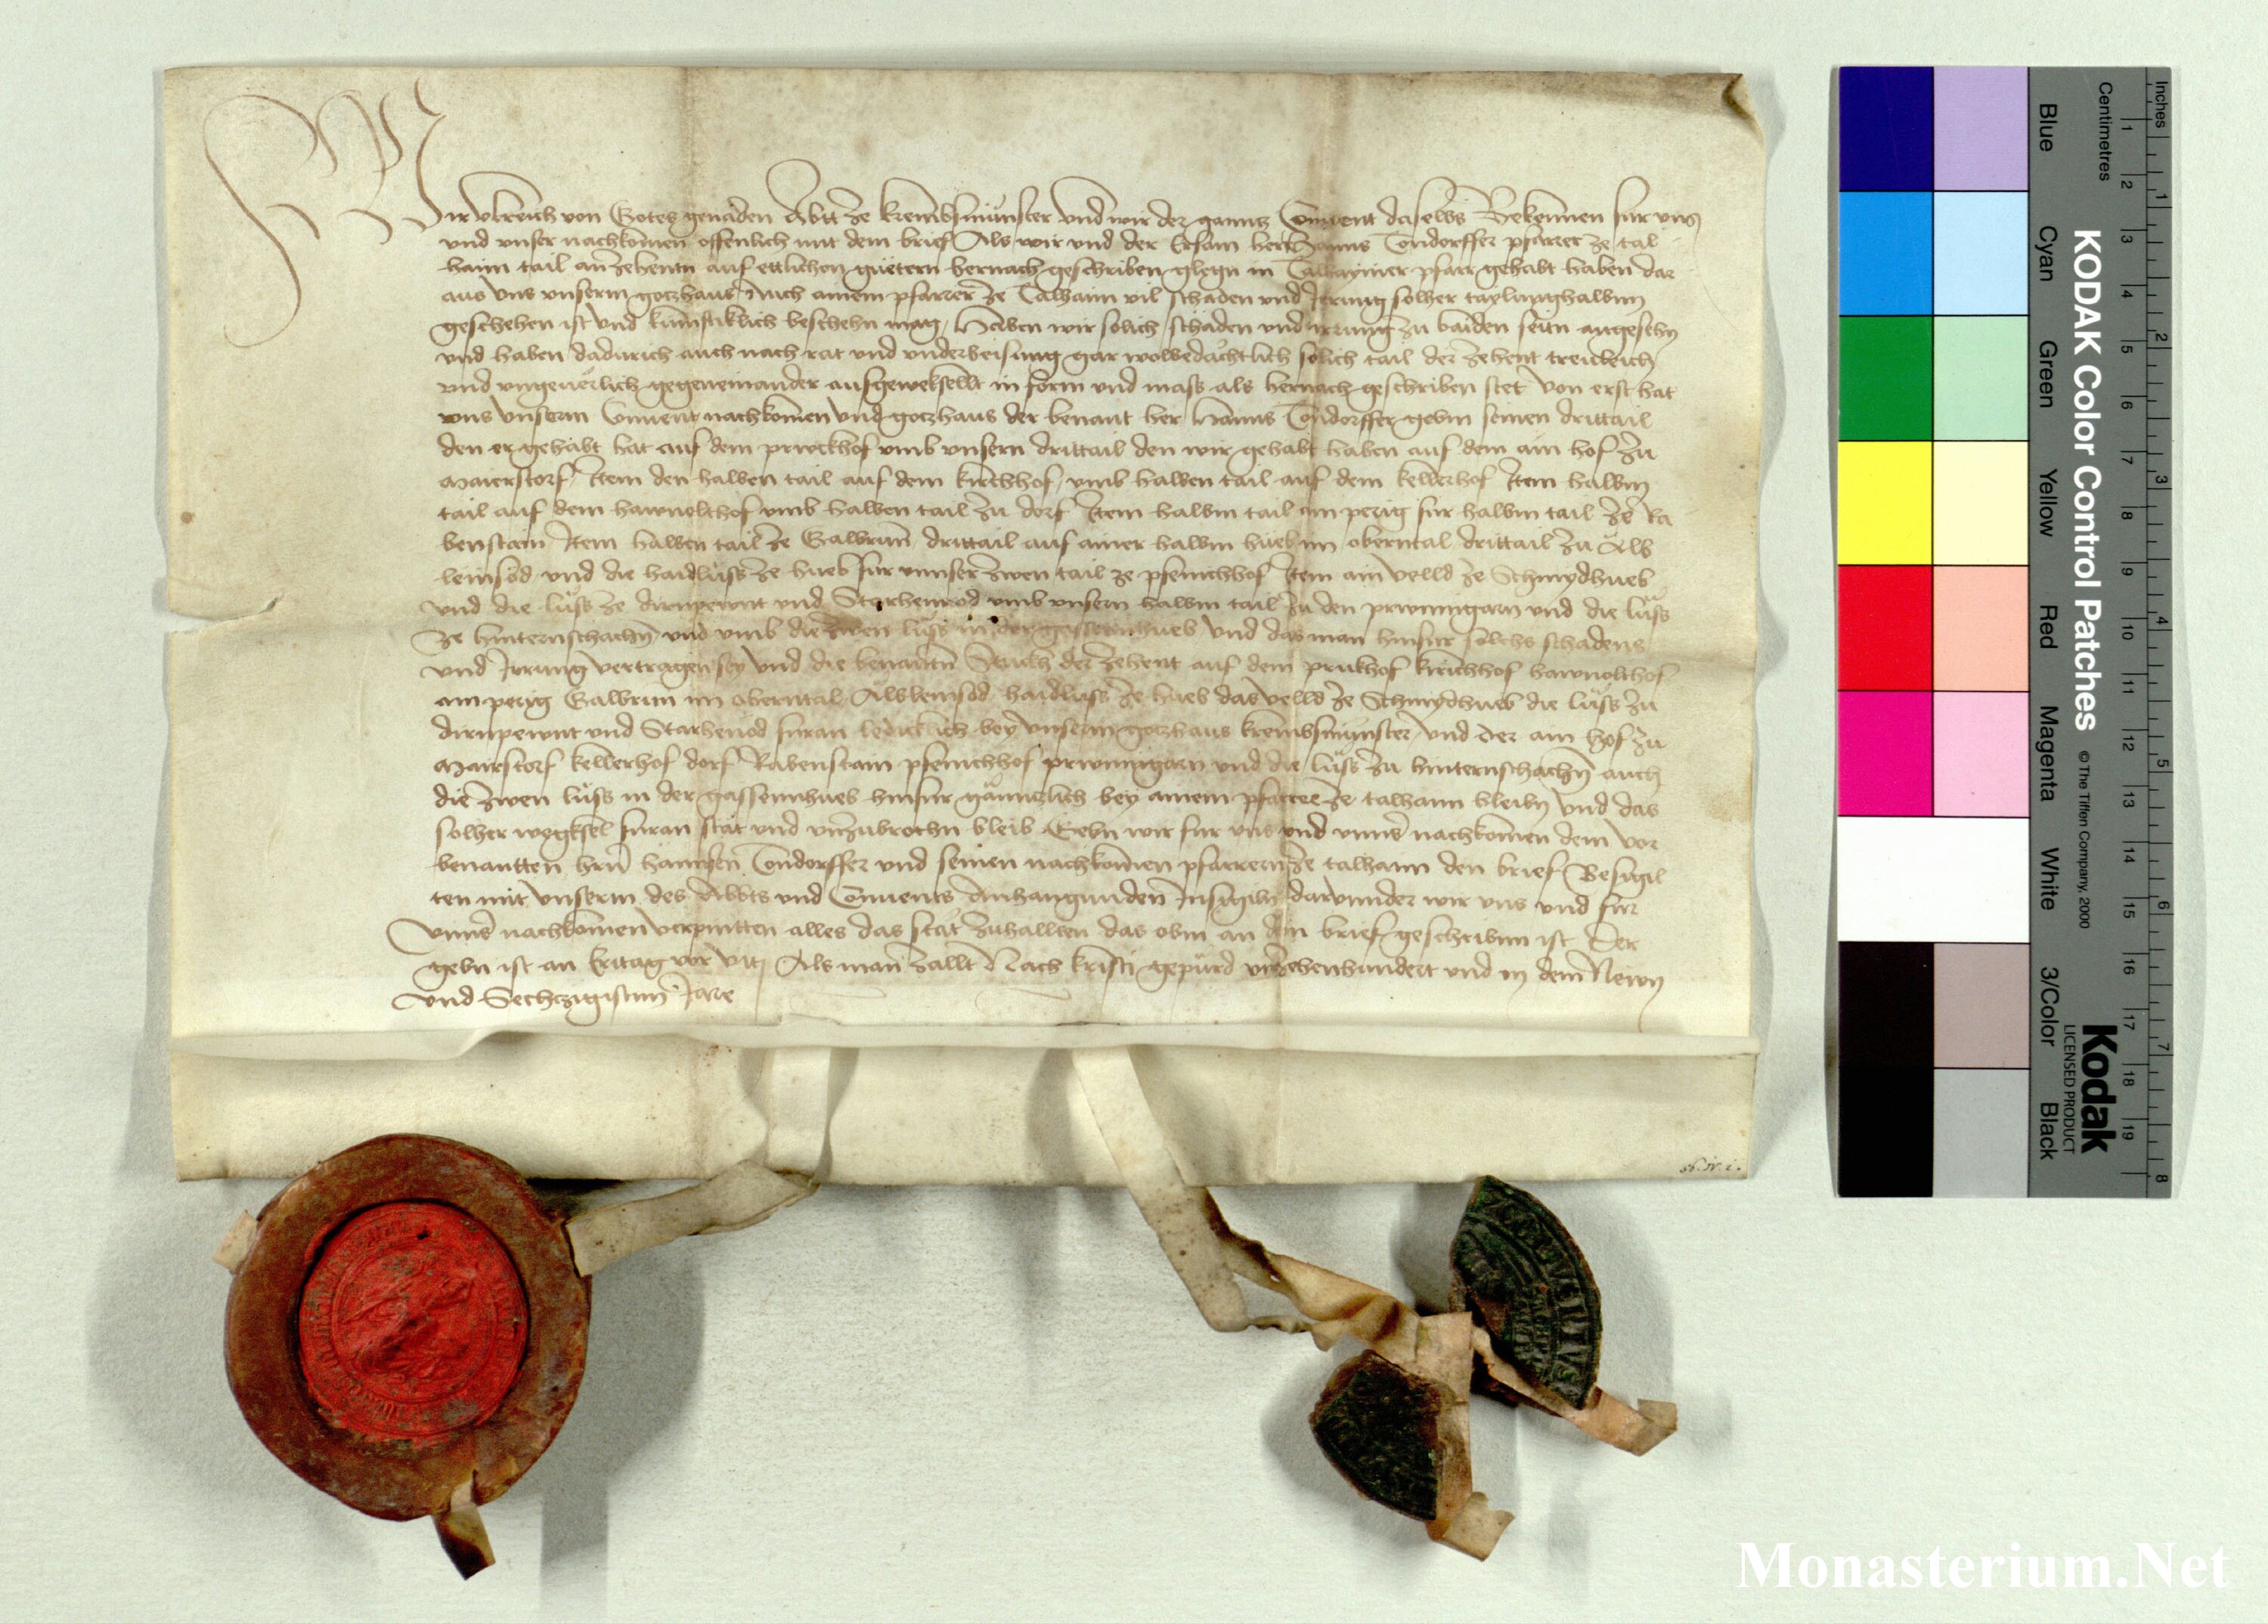 Wir Ulreich von Gotes genaden Abbt ze Krembsmünster und wir der gannz Convent daselbs Bekennen für uns
und unser nachkomen offenlich mit dem brief Als wir und der Ersam her Hanns Tondorffer pfarrer ze tal
haim tail an zehentn auf ettlichen guetern hernach geschriben glegn in Talhaymer pfarr gehabt haben dar
aus uns unserm gotzhaus Auch ainem pfarrer ze Talhaim vil schaden und Irrung solher taylunghalbm
geschehen ist und kunftiklich beschehn mag Haben wir solich schäden und irrung zu baiden seitn angesehn
und haben dadurich auch nach rat und underbeisung gar wolbedächtlich solich tail der zehent treulich
und ungeuerlich gegeneinander ausgewekselt in form und mass als hernach geschriben stet Von erst hat
uns unserm Convent nachkomen und gotzhaus der benant her Hanns Tondorffer gebm seinen drittail
den er gehabt hat auf dem pruckhof umb unsern drittail den wir gehabt haben auf dem ain hof zu
Maierstorf Item den halben tail auf dem kirchhof umb halben tail auf dem kellerhof Item halbm
tail auf dem hawnolthof umb halben tail zu dorf Item halbm tail am perig für halbm tail ze Ra
benstain Item halben tail ze Galbrunn drittail auf ainer halbm hueb im oberntal drittail zu Alb
leinsöd und die haidlüss ze hueb für unnser zwen tail ze pfenichhof Item ain velld ze Schmydhueb
und die lüss ze dirnpewnt und Starhenöd umb unsern halbm tail zu den prunnigarn und die lüss
ze hinternschachn und umb die zwen lüss in der gassennhueb und das man hinfür solchs schadens
und Irrung vertragen sey und die benantn Stuckh der zehent auf dem prukhof kirichhof hawnolthof
am perig Galbrun im oberntal Albleinsöd haidlüss ze hueb das velld ze Schmydhueb die lüss zu
dirnpewnt und Starhenöd füran lediclich bey unserm gotzhaus krembsmünster und der ain hof zu
Mairstorf kellerhof dorf Rabenstain pfenichhof prunnigarn und die lüss zu hinternschachn auch
die zwen lüss in der gassennhueb hinfür gännczlich bey ainem pfarrer ze talhaim bleibn Und das
solher wegksel füran stät und unzubrochn bleib Gebn wir für uns und unns nachkomen dem vor
benantten hrn hannsen Tondorffer und seinen nachkomen pfarrern ze talhaim den brief Besigil
ten mit unserm des Abbts und Convents Anhangunden Insigiln darunnder wir uns und für
unns nachkomen verpintten alles das stät zuhallten das obm an dem brief geschribm ist Der
gebn ist an Eritag vor Viti Als man zallt Nach kristi gepurd vierzehenhundert und in dem Newn
und Sechczigistm Jare
Inches
Centimetres
1 2 3 4 5 6 7 8
1 2 3 4 5 6 7 8 9 10 11 12 13 14 15 16 17 18 19
Blue Cyan Green Yellow Red Magenta White 3/Color Black
KODAK Color Control Patches © The Tiffen Company, 2000
Kodak
LICENSED PRODUCT
Monasterium.Net